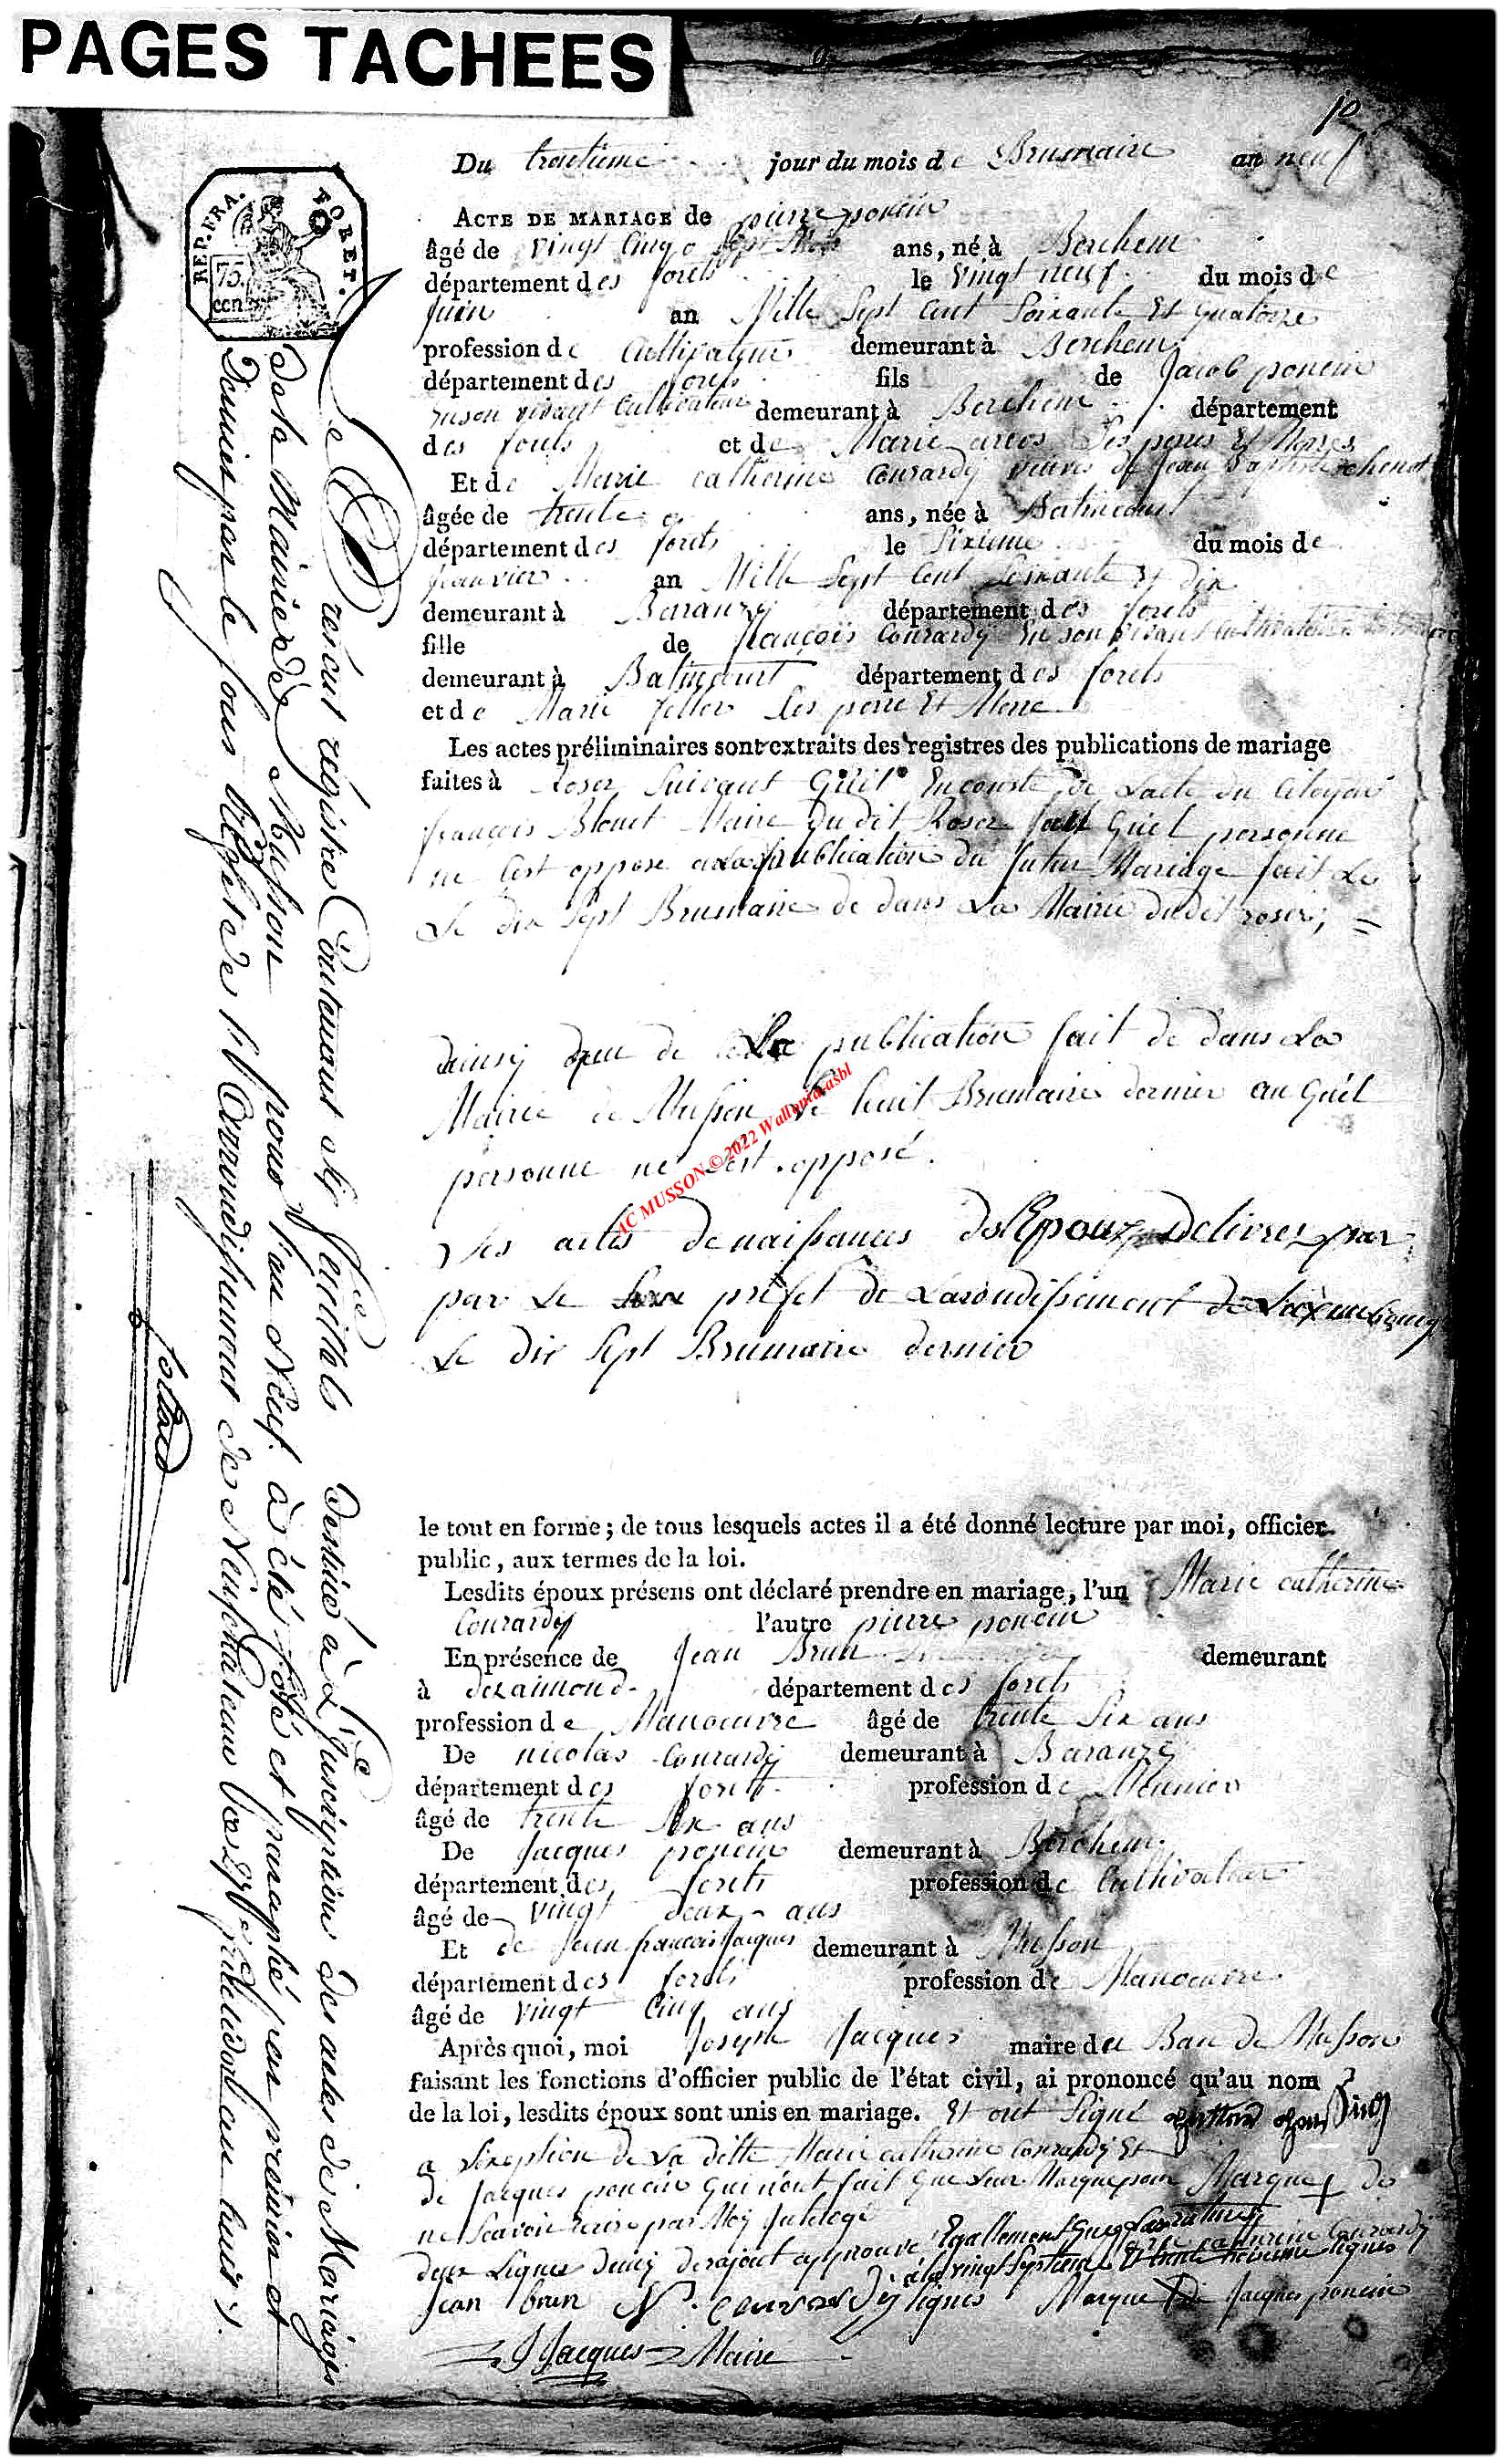 PAGES TACHEES
10
REP. FRA.
FORET.
75
cen.
Du trentieme jour du mois de Brumaire an neuf
ACTE DE MARIAGE de pierre poncin
âgé de vingt cinq ans, né à Berchem
département des forets le vingt neuf du mois de
juin an Mille Sept Cent Soixante Et quatorze
profession de Cultivateur demeurant à Berchem
département des forets fils de Jacob poncin
en son vivant Cultivateur demeurant à Berchem département
des forets et de Marie Ses peres Et Meres
Et de Marie catherine Courardy veuve de Jean Baptiste chenot
âgée de trente ans, née à Batincourt
département des forets le Sixieme du mois de
Janvier an Mille Sept Cent Soixante Et dix
demeurant à Baranzy département des forets
fille de françois Courardy En son vivant Cultivateur
demeurant à Batincourt département des forets
et de Marie feller Ses pere Et Mere
Les actes préliminaires sont extraits des registres des publications de mariage
faites à Roser Suivant Qu'il Enconste de Lacte du Citoyen
françois Blouet Maire dudit Roser fait Quel personne
ne Cest oppose a La publication du futur Mariage fait Le
Le dix Sept Brumaire de dans La Mairie dudit roser,
dainsy que de La publication fait de dans La
Mairie de Musson Le huit Brumaire dernier au Quel
personne ne Sest opposé.
Les actes de naissances des Epoux Delivrez par
par Le prefet de Larondissement de Luxembourg
Le dix Sept Brumaire dernier
le tout en forme ; de tous lesquels actes il a été donné lecture par moi, officier
public, aux termes de la loi.
Lesdits époux présens ont déclaré prendre en mariage, l'un Marie catherine
Courardy l'autre pierre poncin
En présence de Jean Brun demeurant
à département des forets
profession de Manoeuvre âgé de trente Six ans
De nicolas Courardy demeurant à Baranzy
département des forets profession de Meunier
âgé de trente Six ans
De Jacques poncin demeurant à Berchem
département des forets profession de Cultivateur
âgé de vingt deux ans
Et de Jean francois Jacques demeurant à Musson
département des forets profession de Manoeuvre
âgé de vingt Cinq ans
Après quoi, moi Joseph Jacques maire du Ban de Musson
faisant les fonctions d'officier public de l'état civil, ai prononcé qu'au nom
de la loi, lesdits époux sont unis en mariage. Et ont Signé
a Lexeption de La ditte Marie catherine Courardy Et
de Jacques poncin Qui n'ont fait Que Leur Marque pour Marque + de
ne Scavoir Ecrire par Moy catherine Courardy
deux Lignes approuvé Egallement
a la vingt Septieme Et trente lignes
Jean brun N. courardy Marque de Jacques poncin
J Jacques Maire
Le present régistre Contenant feuillets destiné à L'inscription des actes de Mariages
de la Mairie de Musson pour l'an Neuf à été coté et paraphé par premier et
Dernier par le sous préfet de l'Arrondissement de Neufchateau
AC MUSSON © 2022 Wallonia asbl